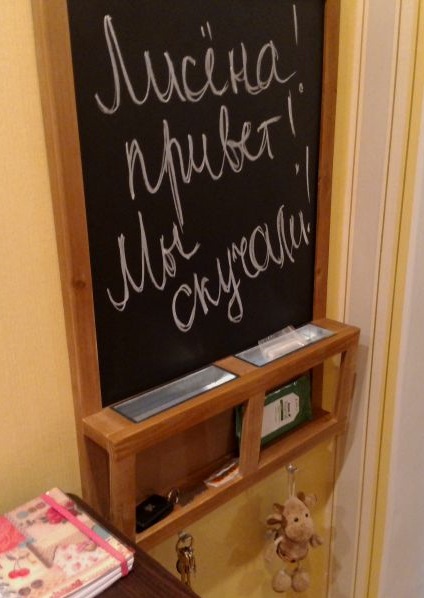 Лисёна!
привет!
Мы
скучали!